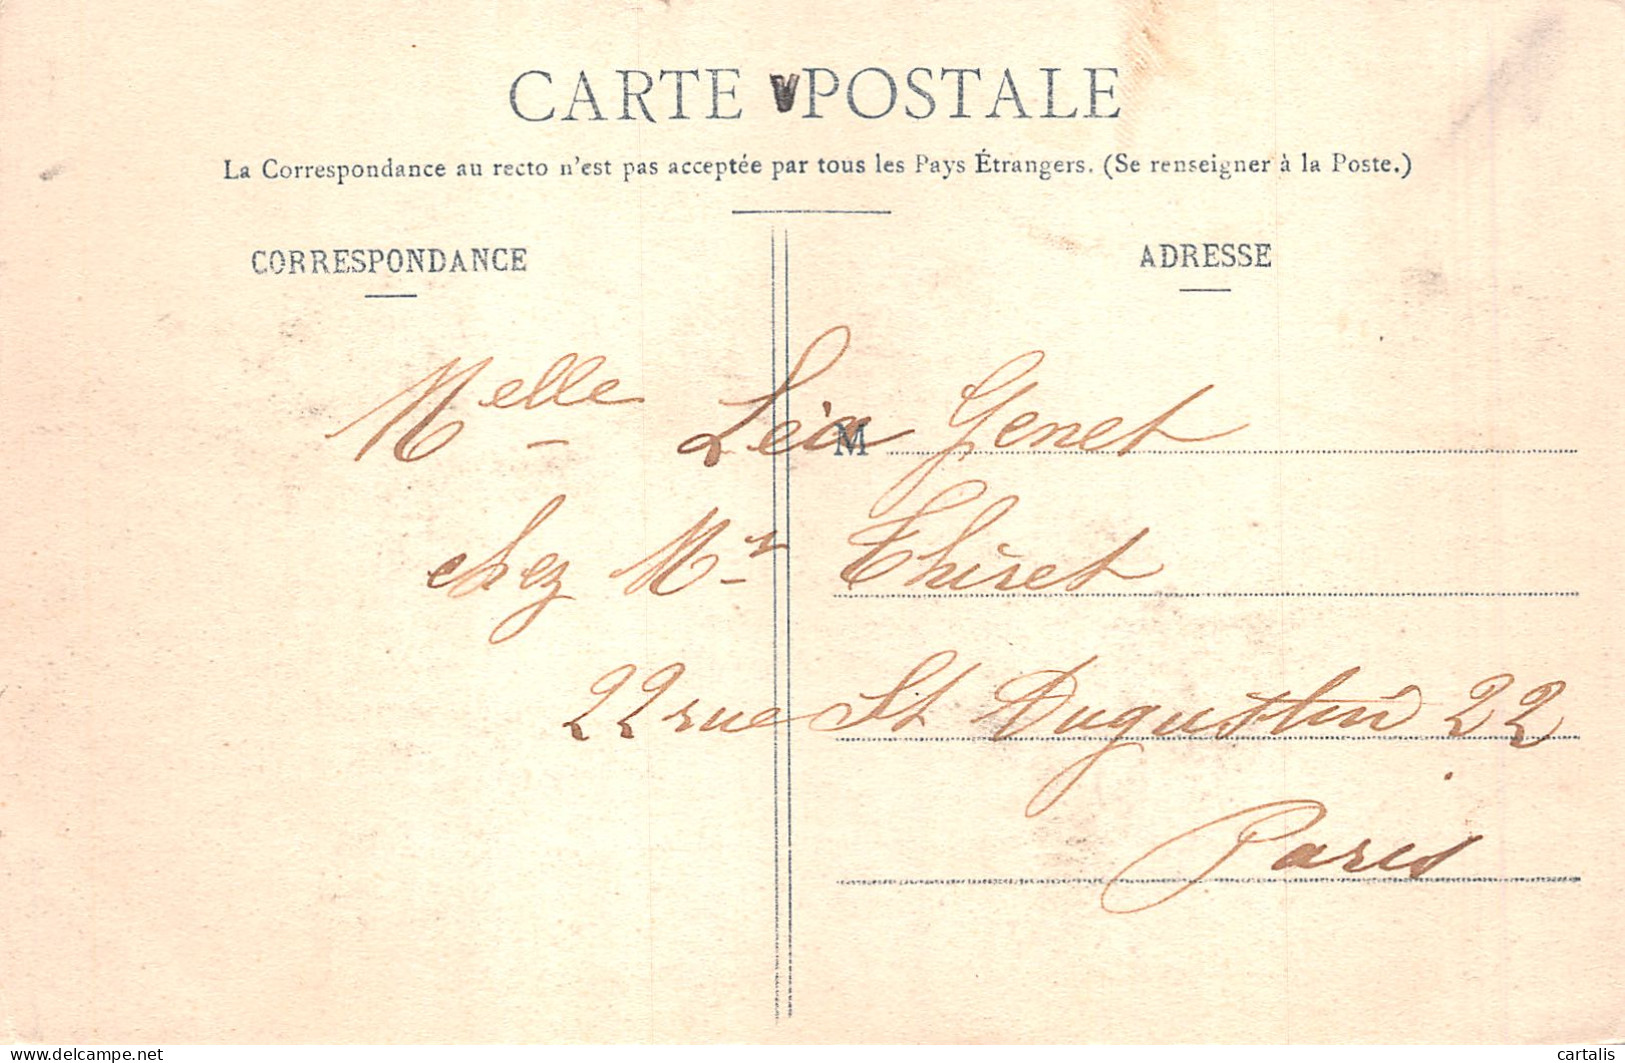 CARTE POSTALE
La Correspondance au recto n'est pas acceptée par tous les Pays Étrangers. (Se renseigner à la Poste.)
CORRESPONDANCE
ADRESSE
M
Melle Léa Genet
chez Mr Thiret
22 rue St Augustin 22
Paris
cartalis